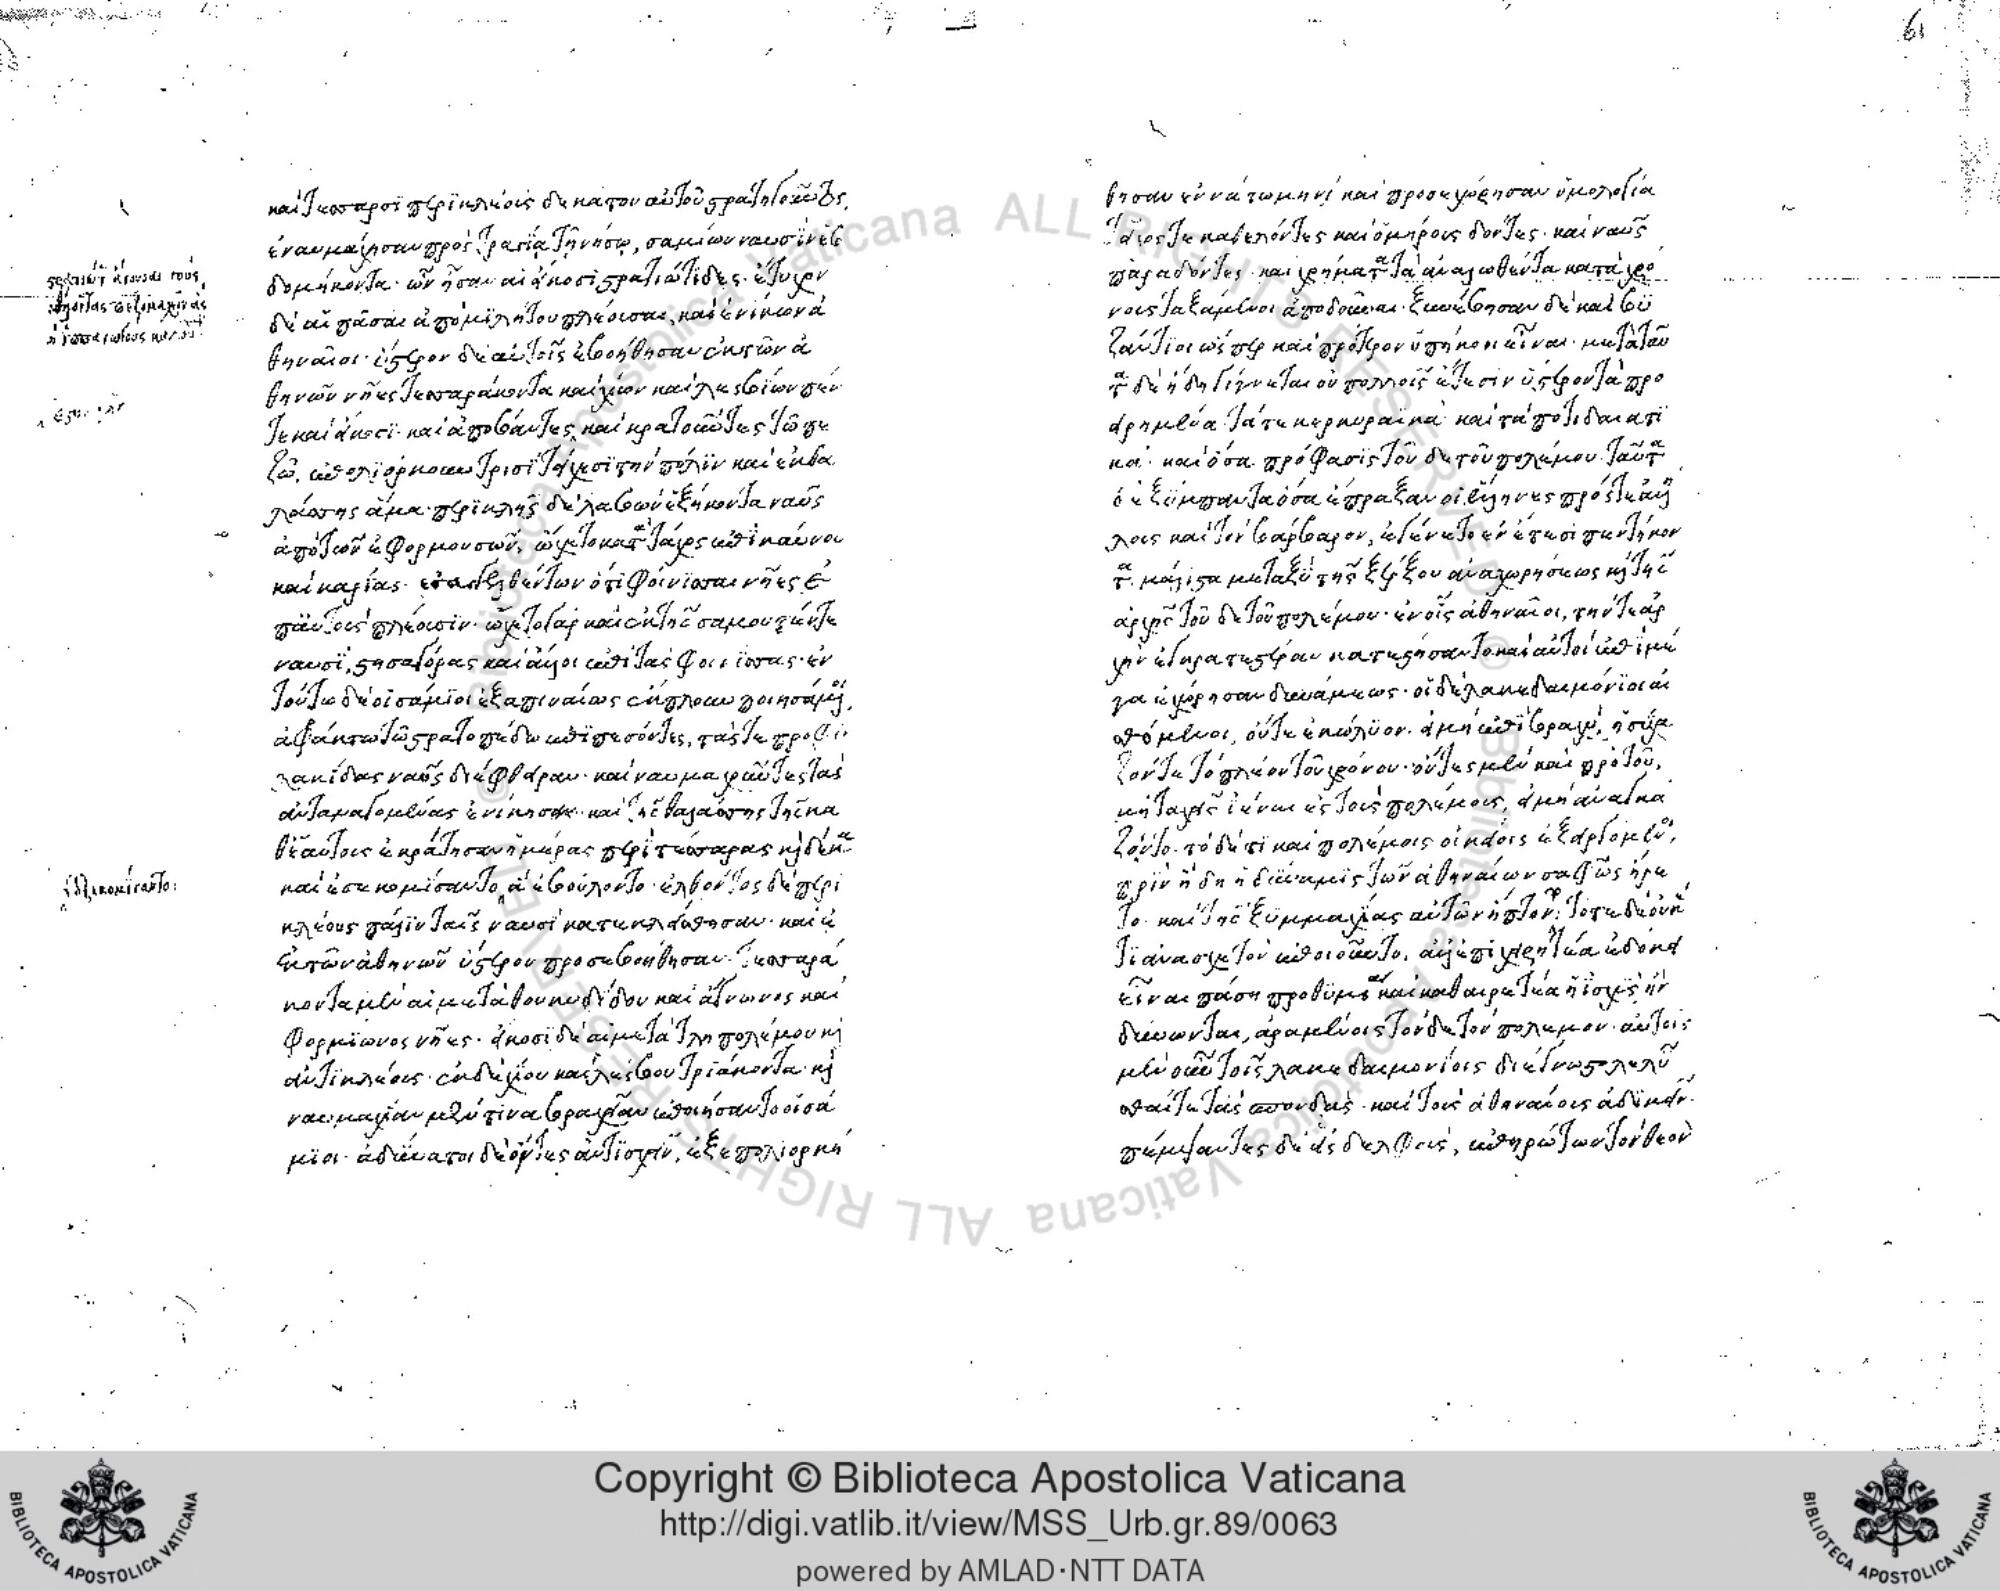 61
στρατιώτ ἄγουσαι τοὺς
ὁπλίτας
καὶ τέσσαρσϊ περϊκλέους δεκάτου αὐτοῦ στρατηγοῦντος,
ἐναυμάχησαν πρὸς τραγία τῆ νήσω, σαμίων ναυσὶν ἑβ
δομήκοντα· ὧν ἦσαν αἱ εἴκοσι στρατιώτιδες· ἔτυχον
δὲ αἱ πᾶσαι ἀπὸ μιλήτου πλέουσαι, καὶ ἐνίκων ἀ
θηναῖοι· ὕστερον δὲ αὐτοῖς ἐβοήθησαν ἐκ τῶν ἀ
θηνῶν νῆες τεσσαράκοντα καὶ χίων καὶ λεσβίων πέν
τε καὶ εἴκοσι· καὶ ἀποβάντες καὶ κρατοῦντες τῶ πε
ζῶ, ἐπολιόρκουν τρισὶ τείχεσι τὴν πόλιν καὶ ἐκ θα
λάσσης ἅμα· περικλῆς δὲ λαβὼν ἑξήκοντα ναῦς
ἀπὸ τῶν ἐφορμουσῶν, ὤχετο κατὰ τάχος ἐπὶ καύνου
καὶ καρίας· ἐσαγγελθέντων ὅτι φοίνισσαι νῆες ἐπ
αὐτοὺς πλέουσιν· ὤχετο γὰρ καὶ ἐκ τῆς σάμου πέντε
ναυσὶ, στησαγόρας καὶ ἄλλοι ἐπὶ τὰς φοινίσσας· ἐν
τούτω δὲ οἱ σάμιοι ἐξαπιναίως ἔκπλουν ποιησάμενοι,
ἀφάκτω τῶ στρατοπέδω ἐπιπεσόντες, τάς τε προφυ
λακίδας ναῦς διέφθειραν· καὶ ναυμαχοῦντες τὰς
ἀνταναγομένας ἐνίκησαν· καὶ τῆς θαλάσσης τῆς κα
θ' ἑαυτοὺς ἐκράτησαν ἡμέρας περὶ τέσσαρας καὶ δέκα
ἐξεκομίσαντο:
καὶ ἐσεκομίσαντο, ἃ ἐβούλοντο· ἐλθόντος δὲ περι
κλέους πάλιν ταῖς ναυσὶ κατεκλείσθησαν· καὶ ἐ
κ τῶν ἀθηνῶν ὕστερον προσεβοήθησαν· τεσσαρά
κοντα μὲν αἱ μετὰ θουκυδίδου καὶ ἅγνωνος καὶ
φορμίωνος νῆες· εἴκοσι δὲ αἱ μετὰ τληπολέμου καὶ
ἀντικλέους· ἐκ δὲ χίου καὶ λέσβου τριάκοντα· καὶ
ναυμαχίαν μέν τινα βραχεῖαν ἐποιήσαντο οἱ σά
μιοι· ἀδύνατοι δὲ ὄντες ἀντισχεῖν, ἐξεπολιορκή
θησαν ἐννάτω μηνὶ καὶ προσεχώρησαν ὁμολογία
τεῖχός τε καθελόντες καὶ ὁμήρους δόντες· καὶ ναῦς
παραδόντες· καὶ χρήματα τὰ ἀναλωθέντα κατὰ χρό
νους ταξάμενοι ἀποδοῦναι· ξυνέβησαν δὲ καὶ βυ
ζάντιοι ὥσπερ καὶ πρότερον ὑπήκοοι εἶναι· μετὰ ταῦ
τα δὲ ἤδη γίγνεται οὐ πολλοῖς ἔτεσιν ὕστερον τὰ προ
ειρημένα· τά τε κερκυραϊκὰ καὶ τὰ ποτιδαιατι
κά· καὶ ὅσα πρόφασις τοῦδε τοῦ πολέμου· ταῦτα
δὲ ξύμπαντα ὅσα ἔπραξαν οἱ ἕλληνες πρός τε ἀλλή
λους καὶ τὸν βάρβαρον, ἐγένετο ἐν ἔτεσι πεντήκον
τα μάλιστα μεταξὺ τῆς ξέρξου ἀναχωρήσεως καὶ τῆς
ἀρχῆς τοῦδε τοῦ πολέμου· ἐν οἷς ἀθηναῖοι, τήν τε ἀρ
χὴν ἐγκρατεστέραν κατεστήσαντο καὶ αὐτοὶ ἐπὶ μέ
γα ἐχώρησαν δυνάμεως· οἱ δὲ λακεδαιμόνιοι αἰ
σθόμενοι, οὔτε ἐκώλυον· εἰ μὴ ἐπὶ βραχὺ, ἡσύχα
ζόν τε τὸ πλέον τοῦ χρόνου· ὄντες μὲν καὶ πρὸ τοῦ,
μὴ ταχεῖς ἰέναι ἐς τοὺς πολέμους, εἰ μὴ ἀναγκά
ζοιντο· τὸ δέ τι καὶ πολέμοις οἰκείοις ἐξειργόμενοι,
πρὶν ἤδη ἡ δύναμις τῶν ἀθηναίων σαφῶς ἤρε
το· καὶ τῆς ξυμμαχίας αὐτῶν ἥπτοντο· τότε δὲ οὐκέ
τι ἀνασχετὸν ἐποιοῦντο, ἀλλ' ἐπιχειρητέα ἐδόκει
εἶναι πάση προθυμία καὶ καθαιρετέα ἡ ἰσχὺς ἢν
δύνωνται, ἀραμένοις τόνδε τὸν πόλεμον· αὐτοῖς
μὲν οὖν τοῖς λακεδαιμονίοις διέγνωστο λελύ
σθαί τε τὰς σπονδὰς· καὶ τοὺς ἀθηναίους ἀδικεῖν·
πέμψαντες δὲ ἐς δελφοὺς, ἐπηρώτων τὸν θεὸν
Copyright © Biblioteca Apostolica Vaticana
http://digi.vatlib.it/view/MSS_Urb.gr.89/0063
powered by AMLAD·NTT DATA
BIBLIOTECA APOSTOLICA VATICANA
BIBLIOTECA APOSTOLICA VATICANA